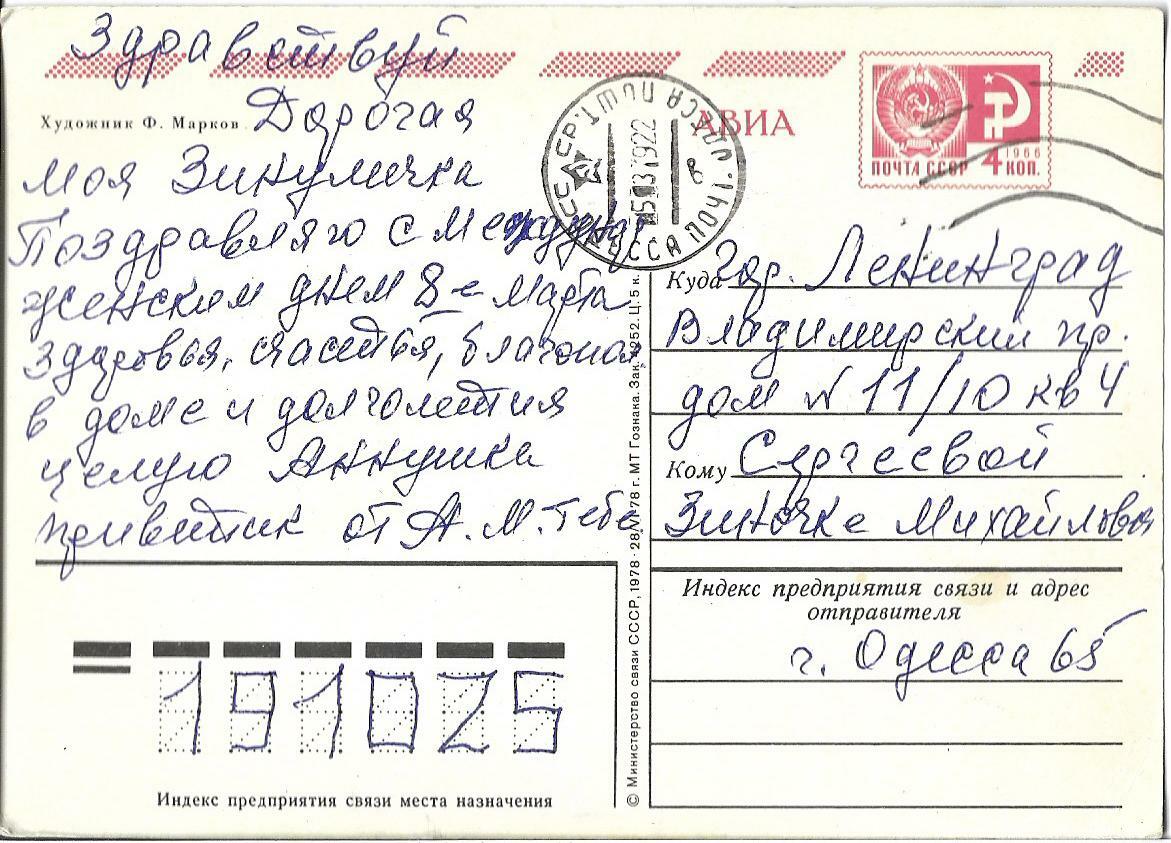 Здравствуй
Художник Ф. Марков
Дорогая
моя Зинуличка
Поздравляю с Междунар
женским днем 8-е Марта
здоровья, счастья, благопол
в доме и долголетия
целую Аннушка
приветик от А. М. тебе
АВИА
ПОЧТА СССР 4 КОП. 1966
СССР ПОШТ. ОДЕСА
ОДЕССА ПОЧТ.
в
Куда гор. Ленинград
Владимирский пр.
дом № 11/10 кв 4
Кому Сергеевой
Зиночке Михайловой
Индекс предприятия связи и адрес
отправителя
г. Одесса 65
191025
Индекс предприятия связи места назначения
© Министерство связи СССР, 1978 · 28/VI-78 г. МТ Гознака. Зак. 4252. Ц. 5 к.